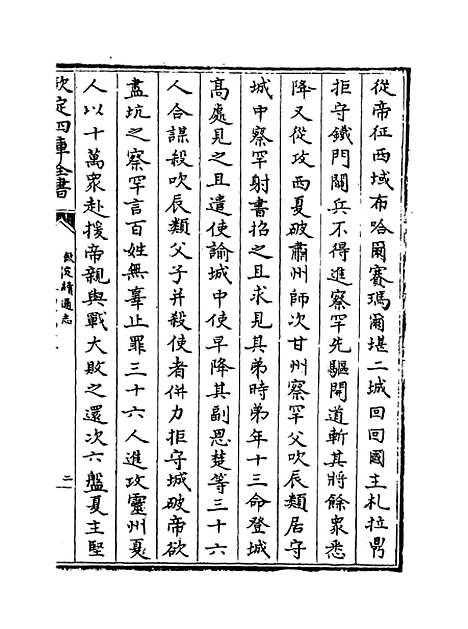 從帝征西域布哈爾賽瑪爾堪二城回回國主札拉鼎
拒守鐵門關兵不得進察罕先驅開道斬其將餘衆悉
降又從攻西夏破肅州師次甘州察罕父吹辰類居守
城中察罕射書招之且求見其弟時弟年十三命登城
髙處見之且遣使諭城中使早降其副恩楚等三十六
人合謀殺吹辰類父子并殺使者併力拒守城破帝欲
盡坑之察罕言百姓無辜止罪三十六人進攻靈州夏
人以十萬衆赴援帝親與戰大敗之還次六盤夏主堅
欽定四庫全書
欽定續通志
二